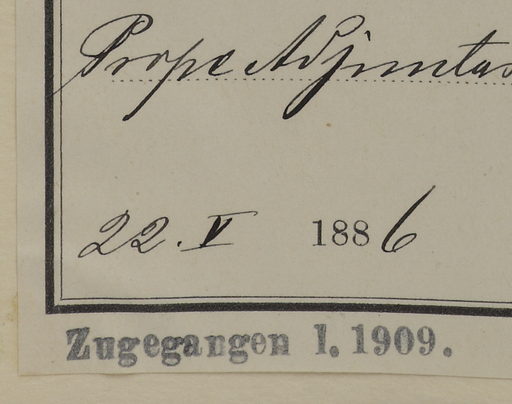 Prope Adjuntas
22. V 1886
Zugegangen 1. 1909.